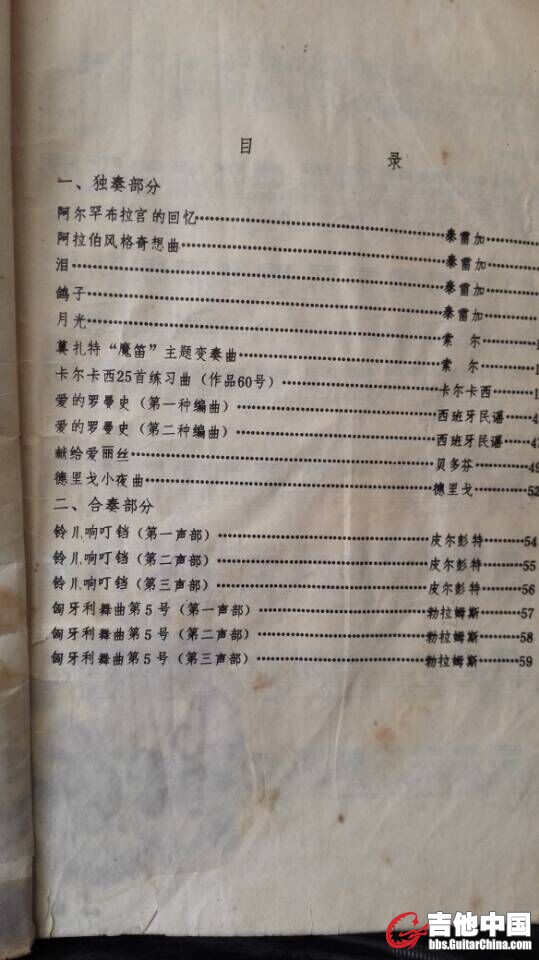 目 录
一、独奏部分
阿尔罕布拉宫的回忆……泰雷加…
阿拉伯风格奇想曲……泰雷加…
泪……泰雷加…
鸽子……泰雷加…
月光……索 尔…1
莫扎特“魔笛”主题变奏曲……索 尔…1
卡尔卡西25首练习曲（作品60号）……卡尔卡西…1
爱的罗曼史（第一种编曲）……西班牙民谣…4
爱的罗曼史（第二种编曲）……西班牙民谣…47
献给爱丽丝……贝多芬…49
德里戈小夜曲……德里戈…52
二、合奏部分
铃儿响叮铛（第一声部）……皮尔彭特…54
铃儿响叮铛（第二声部）……皮尔彭特…55
铃儿响叮铛（第三声部）……皮尔彭特…56
匈牙利舞曲第5号（第一声部）……勃拉姆斯…57
匈牙利舞曲第5号（第二声部）……勃拉姆斯…58
匈牙利舞曲第5号（第三声部）……勃拉姆斯…59
吉他中国
bbs.GuitarChina.com